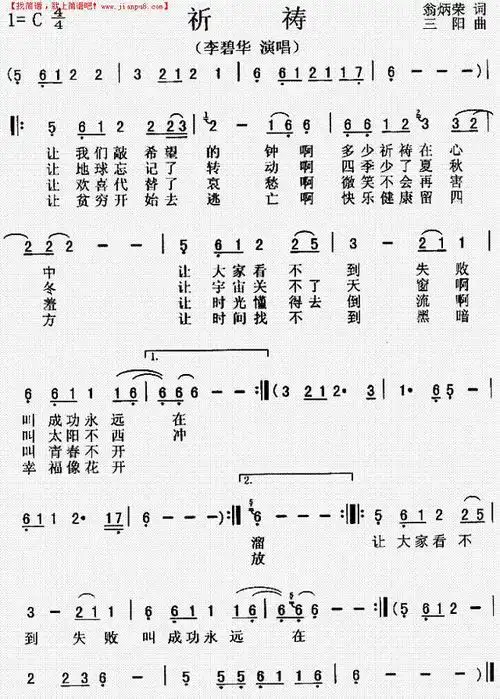 【找简谱,就上简谱吧!www.jianpu8.com】
祈祷
1=C 4/4
翁炳荣 词
三阳 曲
(李碧华 演唱)
(5 612 - - 6123 - - 6121117 6 - -)
5 612 2 223 2 - 1 16 6 612 3 3
让我们敲希望的钟啊 多少祈祷在心
让地球忘记了转动啊 四季少了夏秋
让欢喜代替了哀愁啊 微笑不会再害
让贫穷开始去逃亡啊 快乐健康留四
2 22 - - 5 612 25 3 - 21 1
中 让大家看不到失败
冬 让宇宙关不了天窗啊
羞 让时光懂得去倒流啊
方 让时间找不到黑暗
1.
6 611 1 16 6 66 - -
(3 212· 3 1· 65 -
叫成功永远在
叫太阳不西冲
叫青春不开
幸福像花开
2.
611 2· 17 6 - - -)
6 - - -
5 612 25
溜 让大家看不
放
3 - 211 6 611 1 16 6 6 - -
(5 612
到失败叫成功永远在
2 236 - 5 556 611 6 - - -)